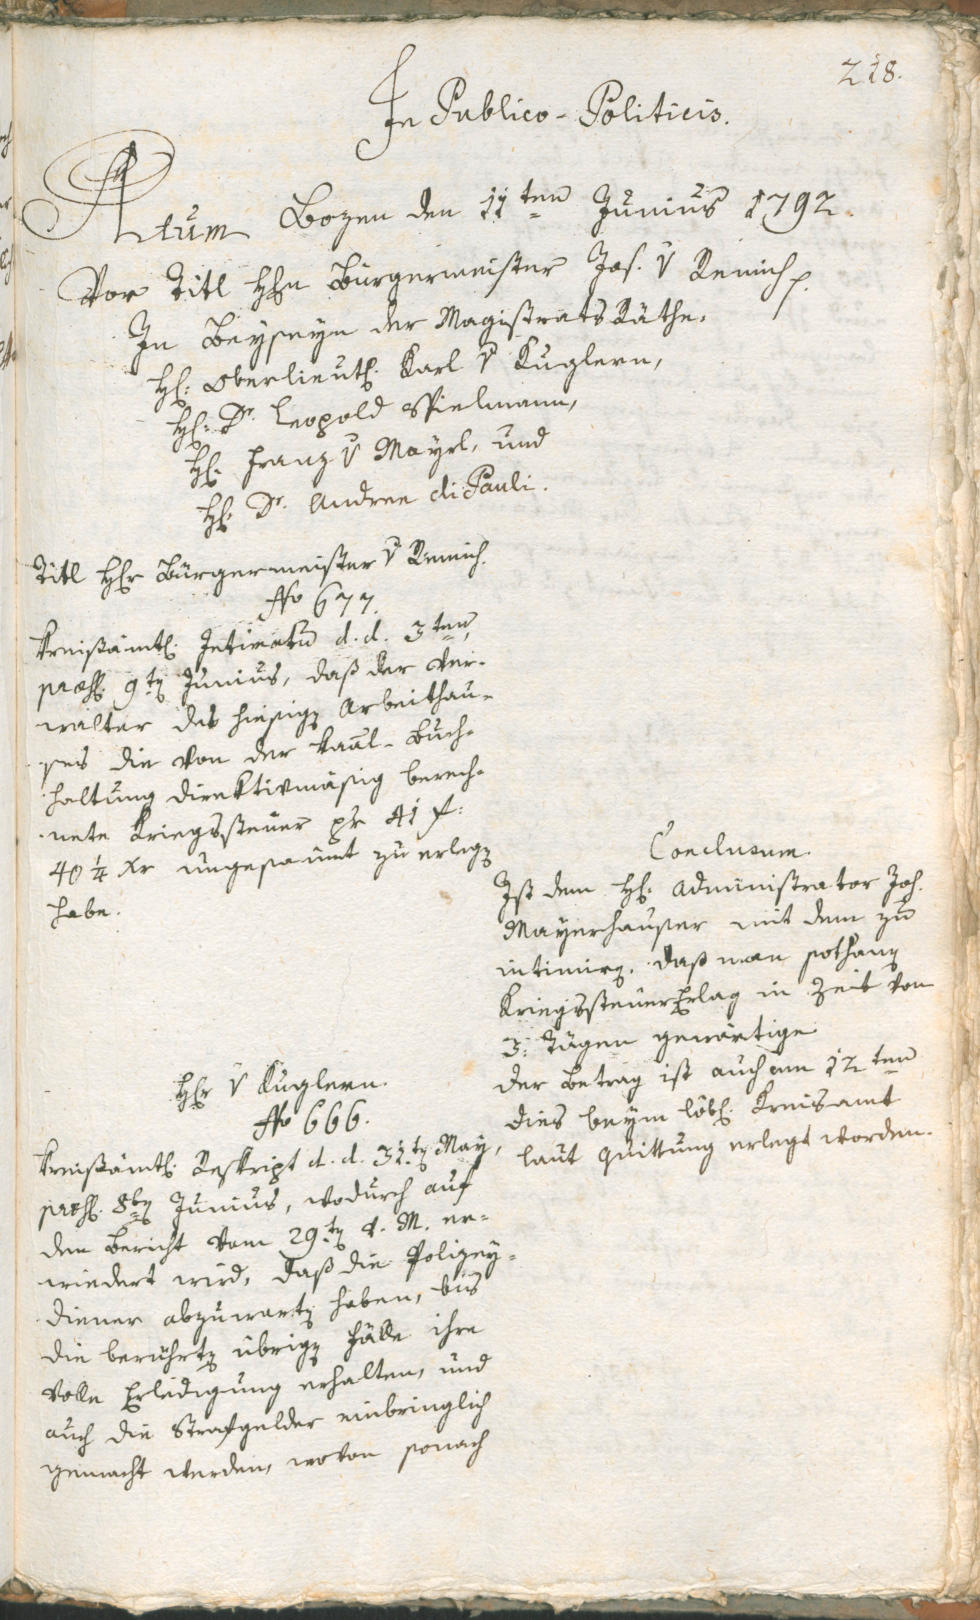 218.
In Publico-Politicis.
Actum Bozen den 11ten Junius 1792.
Vor Titl Hhn Bürgermeister Jos. v Remich p.
In Beyseyn der Magistrats Räthe.
Hh: Oberlieuth. Karl v Kuglern,
Hh: Dr. Leopold Spielmann,
Hh. Franz v Mayrl, und
Hh. Dr. Andree di Pauli.
Titl Hhr Bürgermeister v Remich.
No 677.
Kreisämtl. Intimatum d.d. 3ten,
præs. 9ten Junius, daß der Ver-
walter des hiesigen Arbeithau-
ses die von der Kaal-Buch-
haltung direktivmäsig berech-
nete Kriegssteuer pr 41 f:
40 1/4 Xr ungesaumt zu erlegen
habe.
Conclusum.
Ist dem Hh. Administrator Joh.
Mayerhauser mit dem zu
intimiren, daß man sothanen
Kriegssteuer Erlag in Zeit von
3: Tägen gewärtige.
Der Betrag ist auch am 12ten
dies beym löbl. Kreisamt
laut Quittung erlegt worden.
Hhr v Kuglern.
No 666.
Kreisämtl. Reskript d.d. 31ten May,
præs. 8ten Junius, wodurch auf
den Bericht vom 29ten v. M. er-
wiedert wird, daß die Polizey-
diener abzuwarten haben, bis
die berührten übrigen Fälle ihre
volle Erledigung erhalten, und
auch die Strafgelder einbringlich
gemacht werden, wovon sonach